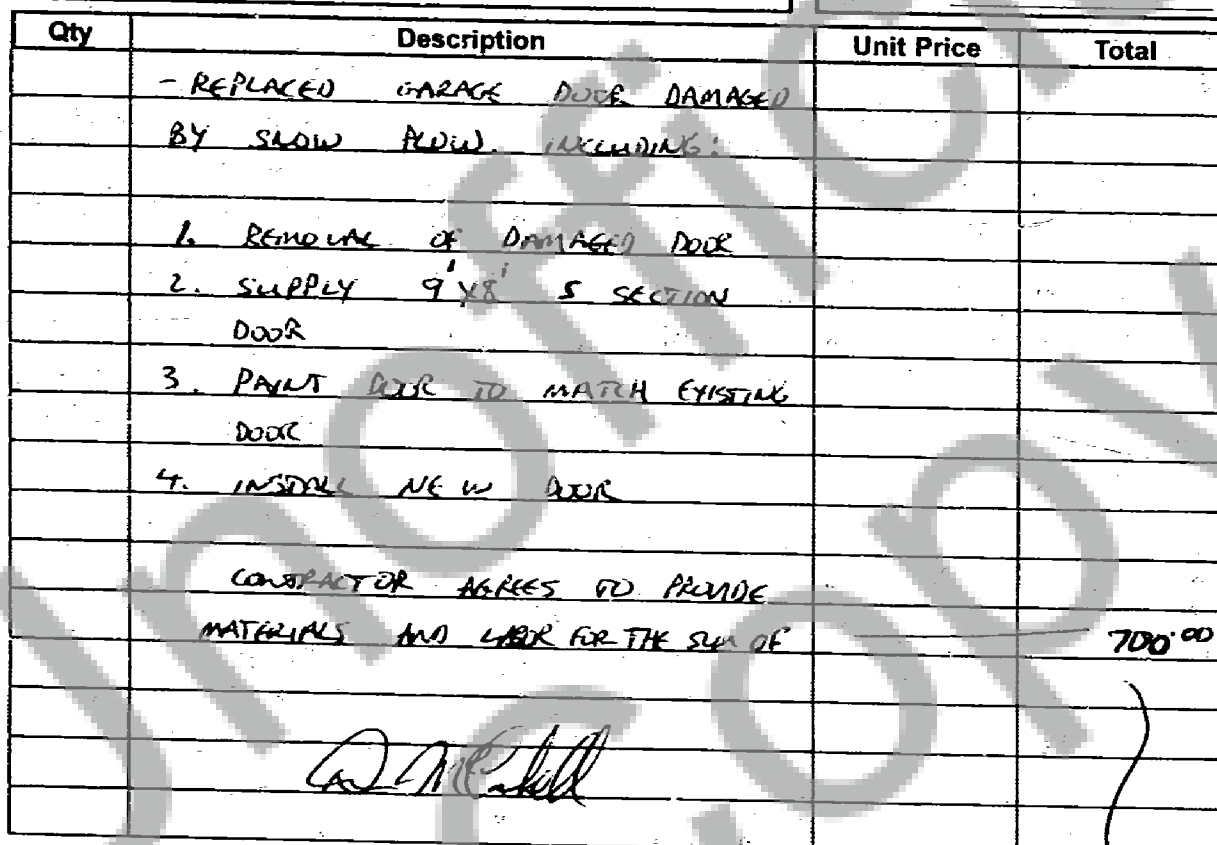 Qty Description Unit Price Total
- REPLACED GARAGE DOOR DAMAGED
BY SNOW PLOW. INCLUDING:
1. REMOVAL OF DAMAGED DOOR
2. SUPPLY 9'x8' 5 SECTION
DOOR
3. PAINT DOOR TO MATCH EXISTING
DOOR
4. INSTALL NEW DOOR
CONTRACTOR AGREES TO PROVIDE
MATERIALS AND LABOR FOR THE SUM OF 700.00